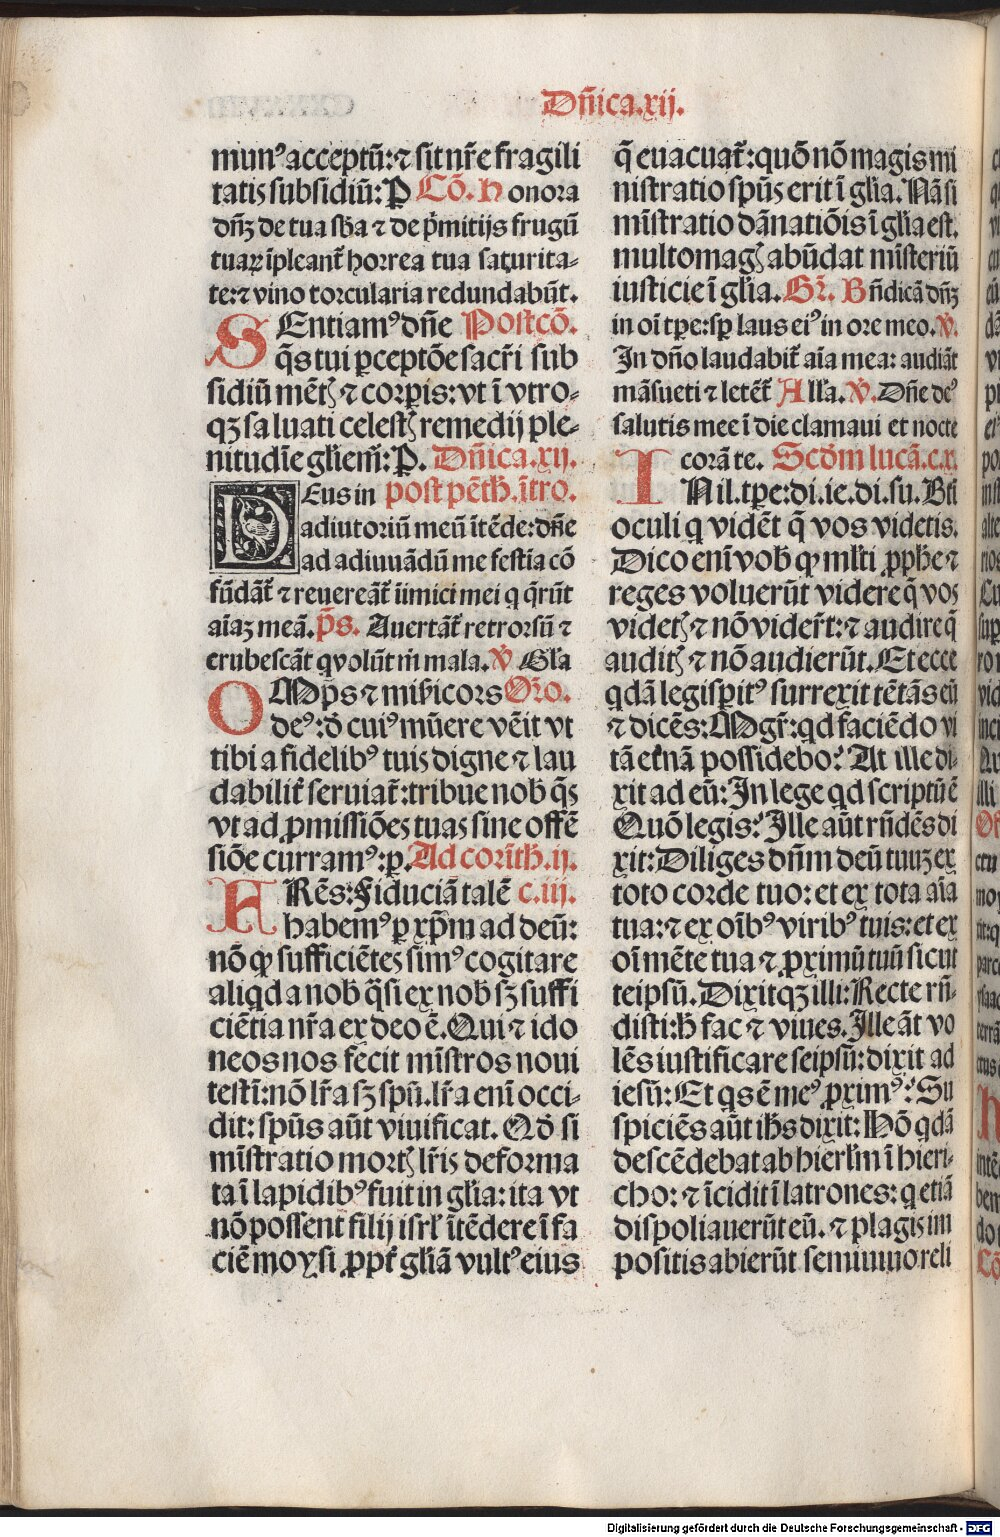 Dñica.xij.
munꝰ acceptũ:⁊ sit nr̃e fragili
tatis subsidiũ:P Cõ. Honora
dñʒ de tua sb̃a ⁊ de p̃mitijs frugũ
tuaꝝ ĩpleant̃ horrea tua saturita-
te:⁊ vino torcularia redundabũt.
SEntiamꝰ dñe Postcõ.
q̃s tui ꝑceptõe sacr̃i sub
sidiũ mẽtꝭ ⁊ corꝑis:vt ĩ vtro-
qʒ saluati celestꝭ remedij ple-
nitudĩe gl̃iem̃:P. Dñica.xij.
DEus in post pẽth̃.ĩtro.
adiutoriũ meũ ĩtẽde:dñe
ad adiuuãdũ me festĩa cõ
fũdãt̃ ⁊ reuereãt̃ iĩmici mei q q̃rũt
aĩaʒ meã. p̃s. Auertãt̃ retrorsũ ⁊
erubescãt q volũt m̃ mala. V̾ Gl̃a
OMp̃s ⁊ mis̃icors Or̃o.
deꝰ:d̾ cuiꝰ mũere vẽit vt
tibi a fidelibꝰ tuis digne ⁊ lau
dabilit̃ seruiat̃:tribue nob̃ q̃s
vt ad ꝓmissiões tuas sine offẽ
siõe curramꝰ:p. Ad corĩth̃.ij.
FRẽs:Fiduciã talẽ c.iij.
habemꝰ ꝑ xp̃m ad deũ:
nõ ꝙ sufficiẽtes simꝰ cogitare
aliqd a nob̃ q̃si ex nob̃ sʒ suffi
ciẽtia nr̃a ex deo ẽ. Qui ⁊ ido
neos nos fecit mĩstros noui
testĩ:nõ lr̃a sʒ spũ. lr̃a enĩ occi-
dit: spũs aũt viuificat. Qd̾ si
mĩstratio mortꝭ lr̃is deforma
ta ĩ lapidibꝰ fuit in gl̃ia: ita vt
nõ possent filij isrl̃ ĩtẽdere ĩ fa
ciẽ moysi ꝓpt̃ gl̃iã vultꝰ eius
q̃ euacuat̃:quõ nõ magis mi
nistratio spũs erit ĩ gl̃ia. Nã si
mĩstratio dãnatiõis ĩ gl̃ia est.
multomagꝭ abũdat mĩsteriũ
iusticie ĩ gl̃ia. Gr̃. Bñdicã dñʒ
in oĩ tp̃e:sp̃ laus eiꝰ in ore meo. V̾.
In dño laudabit̃ aĩa mea: audiãt
mãsueti ⁊ letẽt̃ All̃a. V̾. Dñe deꝰ
salutis mee ĩ die clamaui et nocte
corã te. Scd̃m lucã.c.x.
IN il.tp̃e:di.ie.di.su. Bt̃i
oculi q vidẽt q̃ vos videtis.
Dico enĩ vob̃ ꝙ ml̃ti ꝓph̃e ⁊
reges voluerũt videre q̃ vos
videtꝭ ⁊ nõ vider̃t:⁊ audire q̃
auditꝭ ⁊ nõ audierũt. Et ecce
qdã legisꝑitꝰ surrexit tẽtãs eũ
⁊ dicẽs:Mgr̃:qd faciẽdo vi
tã et̃nã possidebo? At ille di-
xit ad eũ:In lege qd scriptũ ẽ
Quõ legis? Ille aũt rñdẽs di
xit:Diliges dñm deũ tuuʒ ex
toto corde tuo: et ex tota aĩa
tua:⁊ ex oĩbꝰ viribꝰ tuis:et ex
oĩ mẽte tua ⁊ ꝓximũ tuũ sicut
teipsũ. Dixitqʒ illi:Recte rñ-
disti:h̾ fac ⁊ viues. Ille aũt vo
lẽs iustificare seipsũ:dixit ad
iesũ:Et qs ẽ meꝰ ꝓximꝰ? Su
spiciẽs aũt ih̃s dixit:Hõ qdã
descẽdebat ab hierl̃m ĩ hieri-
cho:⁊ ĩcidit ĩ latrones:q etiã
dispoliauerũt eũ. ⁊ plagis im
positis abierũt semiuiuo reli
Digitalisierung gefördert durch die Deutsche Forschungsgemeinschaft - DFG